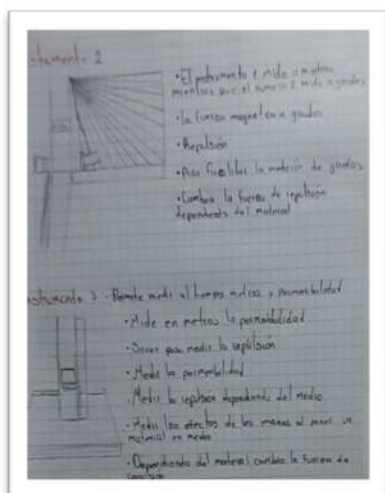 stumento 2
• El instrumento 1 mide a metros
mientras que el numero 2 mide a grados
• La fuerza magnetica a grados
• Repulsión
• Para facilitar la medición de grados
• Cambia la fuerza de repulsión
dependents del material
nstrumento 3 - Permite medir al tiempo metros y permeabilidad
• Mide en metros la permeabilidad
• Sirven para medir la repulsión
• Medir la permeabilidad
• Medir la repulsion dependiendo del medio
• Medir los efectos de los al poner un
material en medio
• Dependiendo del material cambia la fuerza de